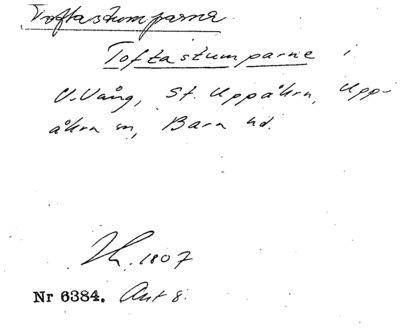 Toftastumparne
Toftastumparne i
V. Vång, St. Uppåkra, Upp-
åkra sn, Bara hd.
1807
Nr 6384. Akt 8.